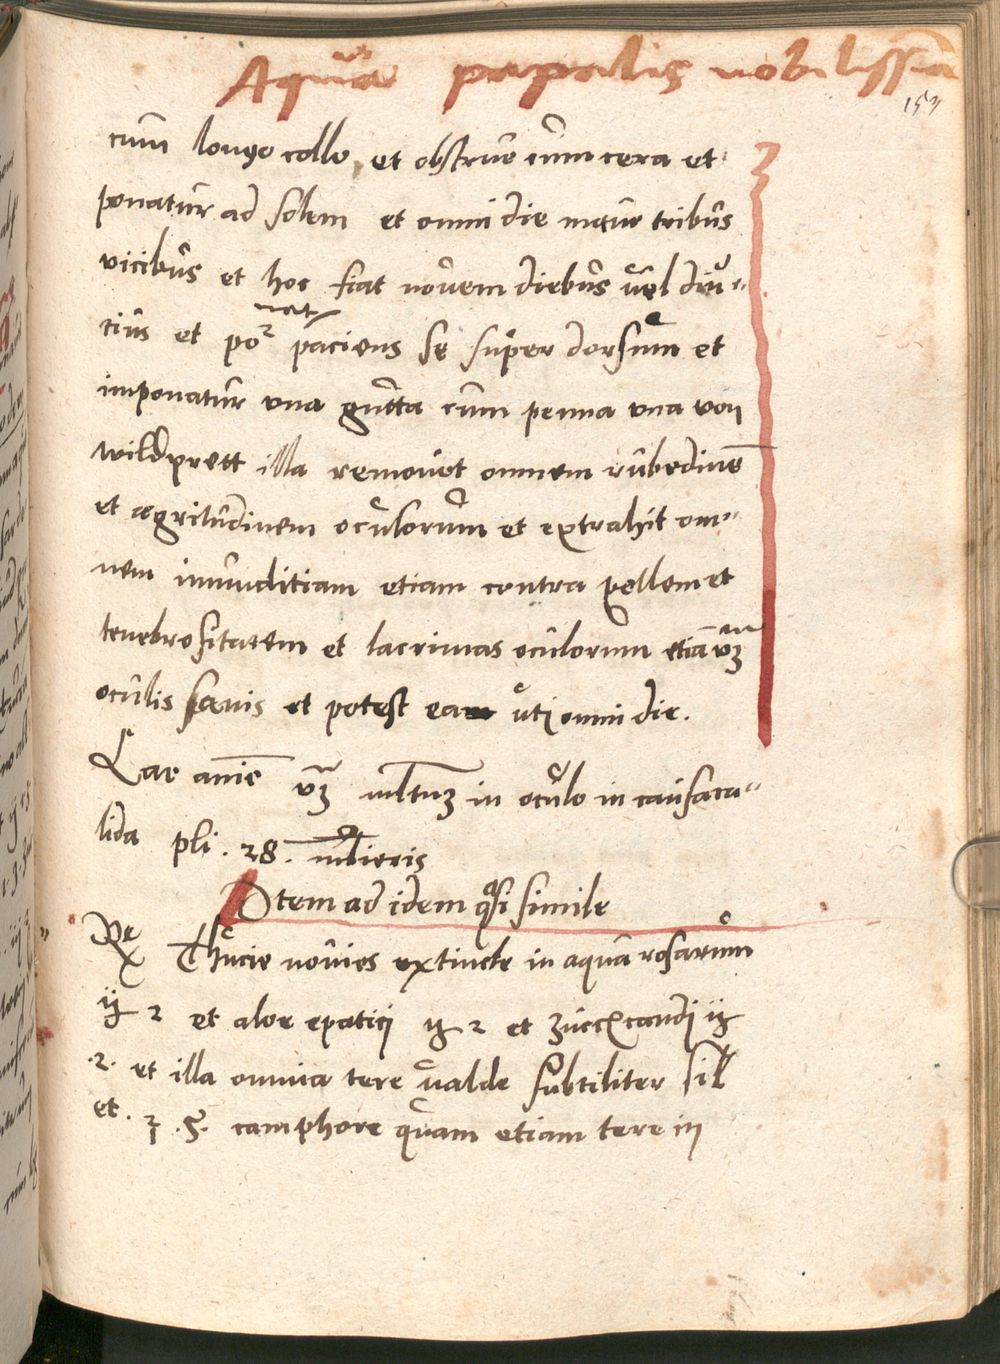 Aqua papalis nobilissia
153
cum longo collo, et obstrue cum cera et
ponatur ad solem et omni die mittur tribus
vicibus et hoc fiat novem diebus vel diu=
nat
tius et po2 paciens se super dorsum et
imponatur una gutta cum penna una von
wildprett illa removet omnem rubedine
et ægritudinem oculorum et extrahit om=
nem immunditiam etiam contra pellem et
tenebrositatem et lacrimas oculorum etia vz
oculis sanis et potest ea uti omni die.
Lac anīe vz mltuz in oculo in causa ca=
lida pli. 28. mlieris
Item ad idem qsi simile
Rx Thucie novies extincte in aqua rosarum
ij ʒ et aloe epatici ij ʒ et zuccarcandi ij
.ʒ. et illa omnia tere valde subtiliter sil
et. ʒ .s. camphore quam etiam tere in